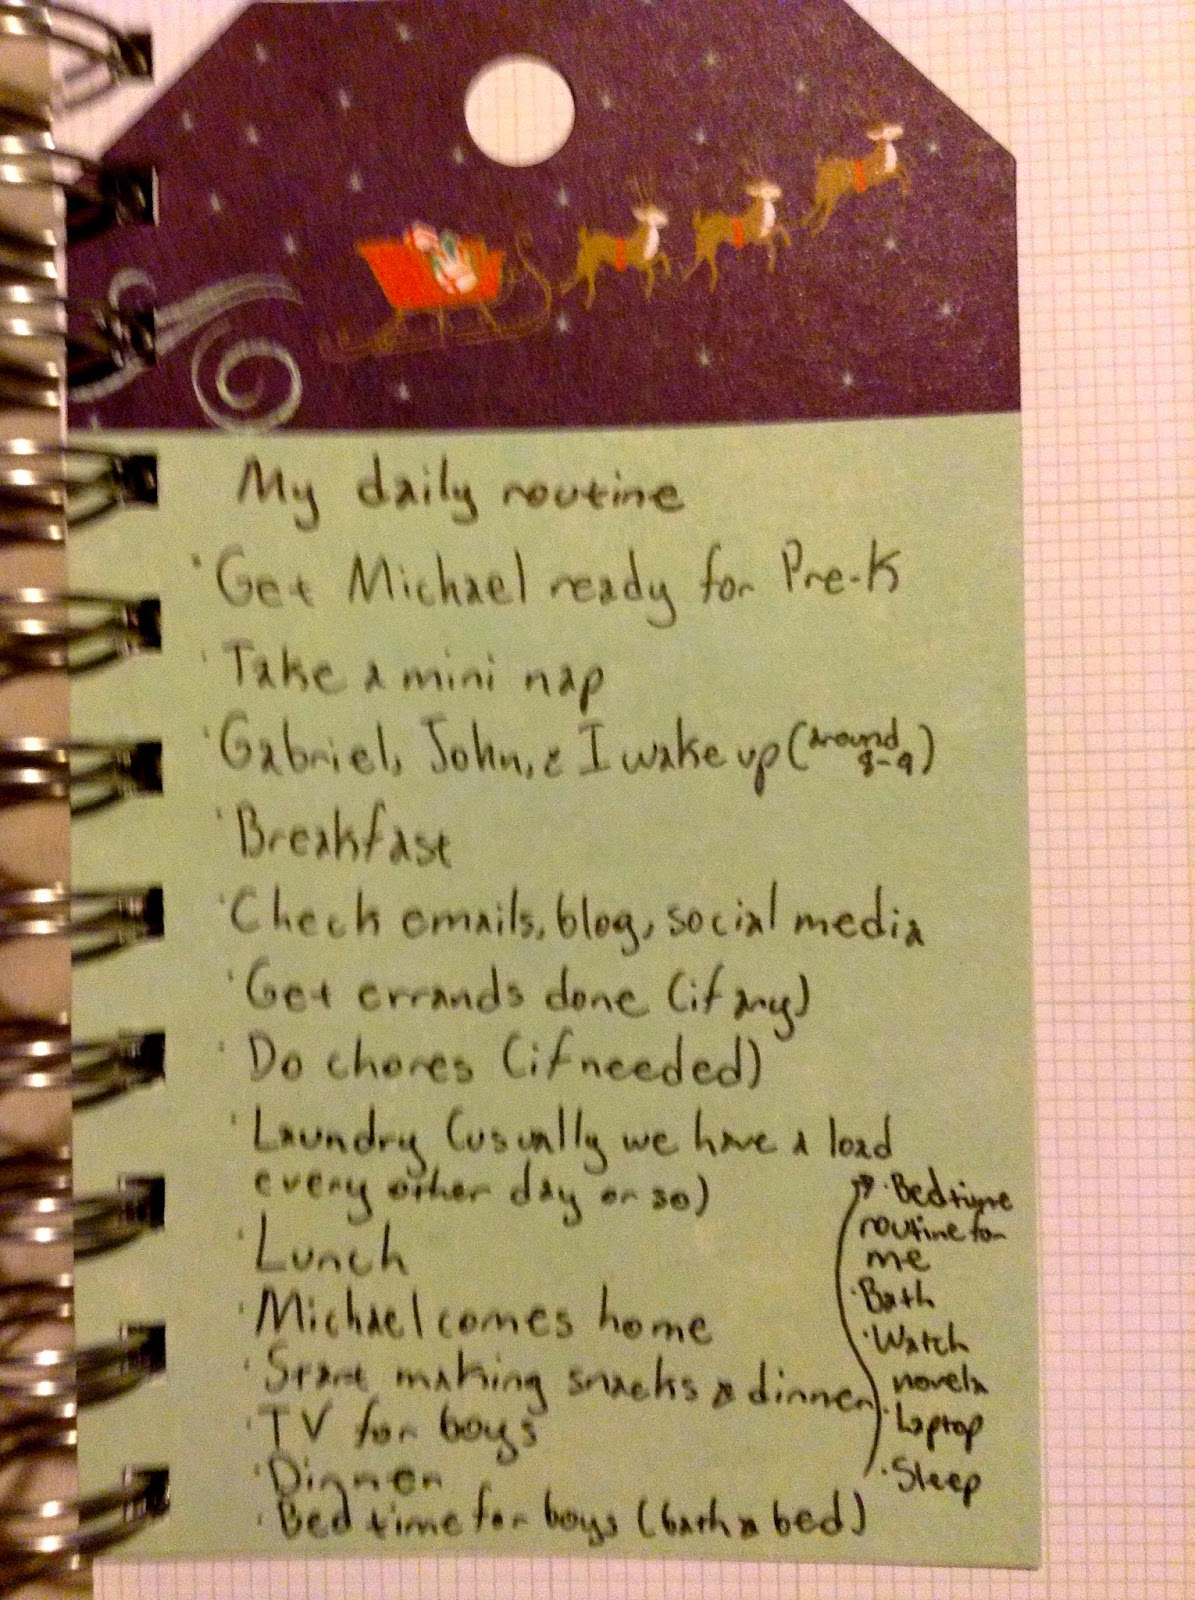 My daily routine
· Get Michael ready for Pre-K
· Take a mini nap
· Gabriel, John, & I wake up (around 8-9)
· Breakfast
· Check emails, blog, social media
· Get errands done (if any)
· Do chores (if needed)
· Laundry (usually we have a load
every other day or so)
· Lunch
· Michael comes home
· Start making snacks & dinner
· TV for boys
· Dinner
· Bedtime for boys (bath & bed)
· Bedtime
routine for
me
· Bath
· Watch
novela
· Laptop
· Sleep